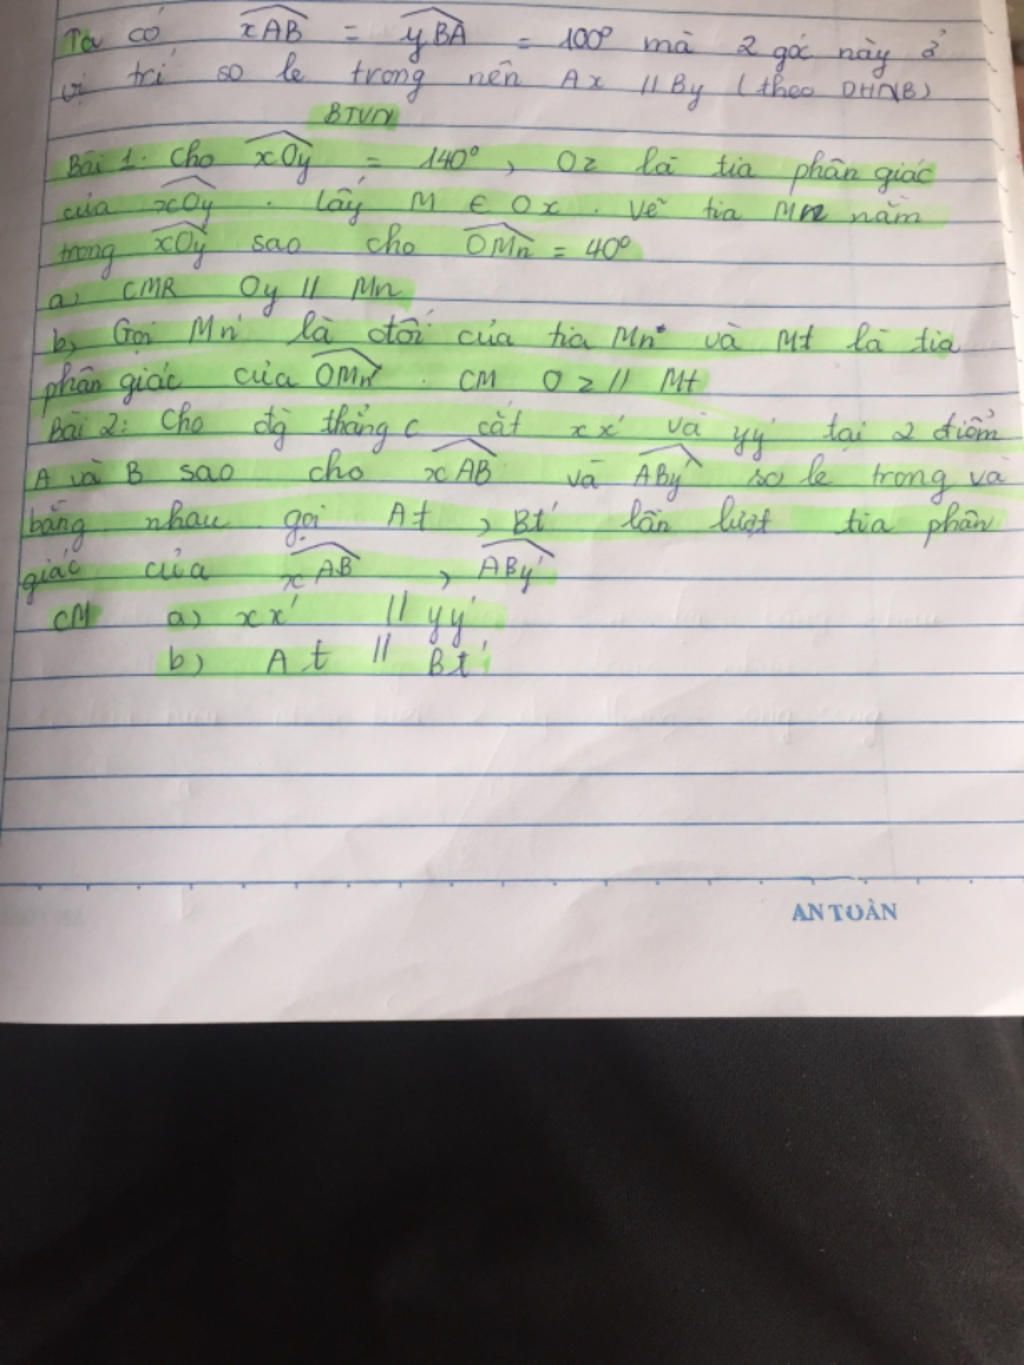 Ta có xAB = yBA = 100° mà 2 góc này ở
vị trí so le trong nên Ax // By (theo DHNB)
BTVN
Bài 1. Cho xOy = 140°, Oz là tia phân giác
của xOy. Lấy M ∈ Ox. Vẽ tia Mn nằm
trong xOy sao cho OMn = 40°
a, CMR Oy // Mn
b, Gọi Mn' là đối của tia Mn và Mt là tia
phân giác của OMn'. CM Oz // Mt
Bài 2: Cho đg thẳng c cắt xx' và yy' tại 2 điểm
A và B sao cho xAB và ABy' so le trong và
bằng nhau gọi At, Bt' lần lượt tia phân
giác của xAB, ABy'
CM a) xx' // yy'
b) At // Bt'
AN TOÀN